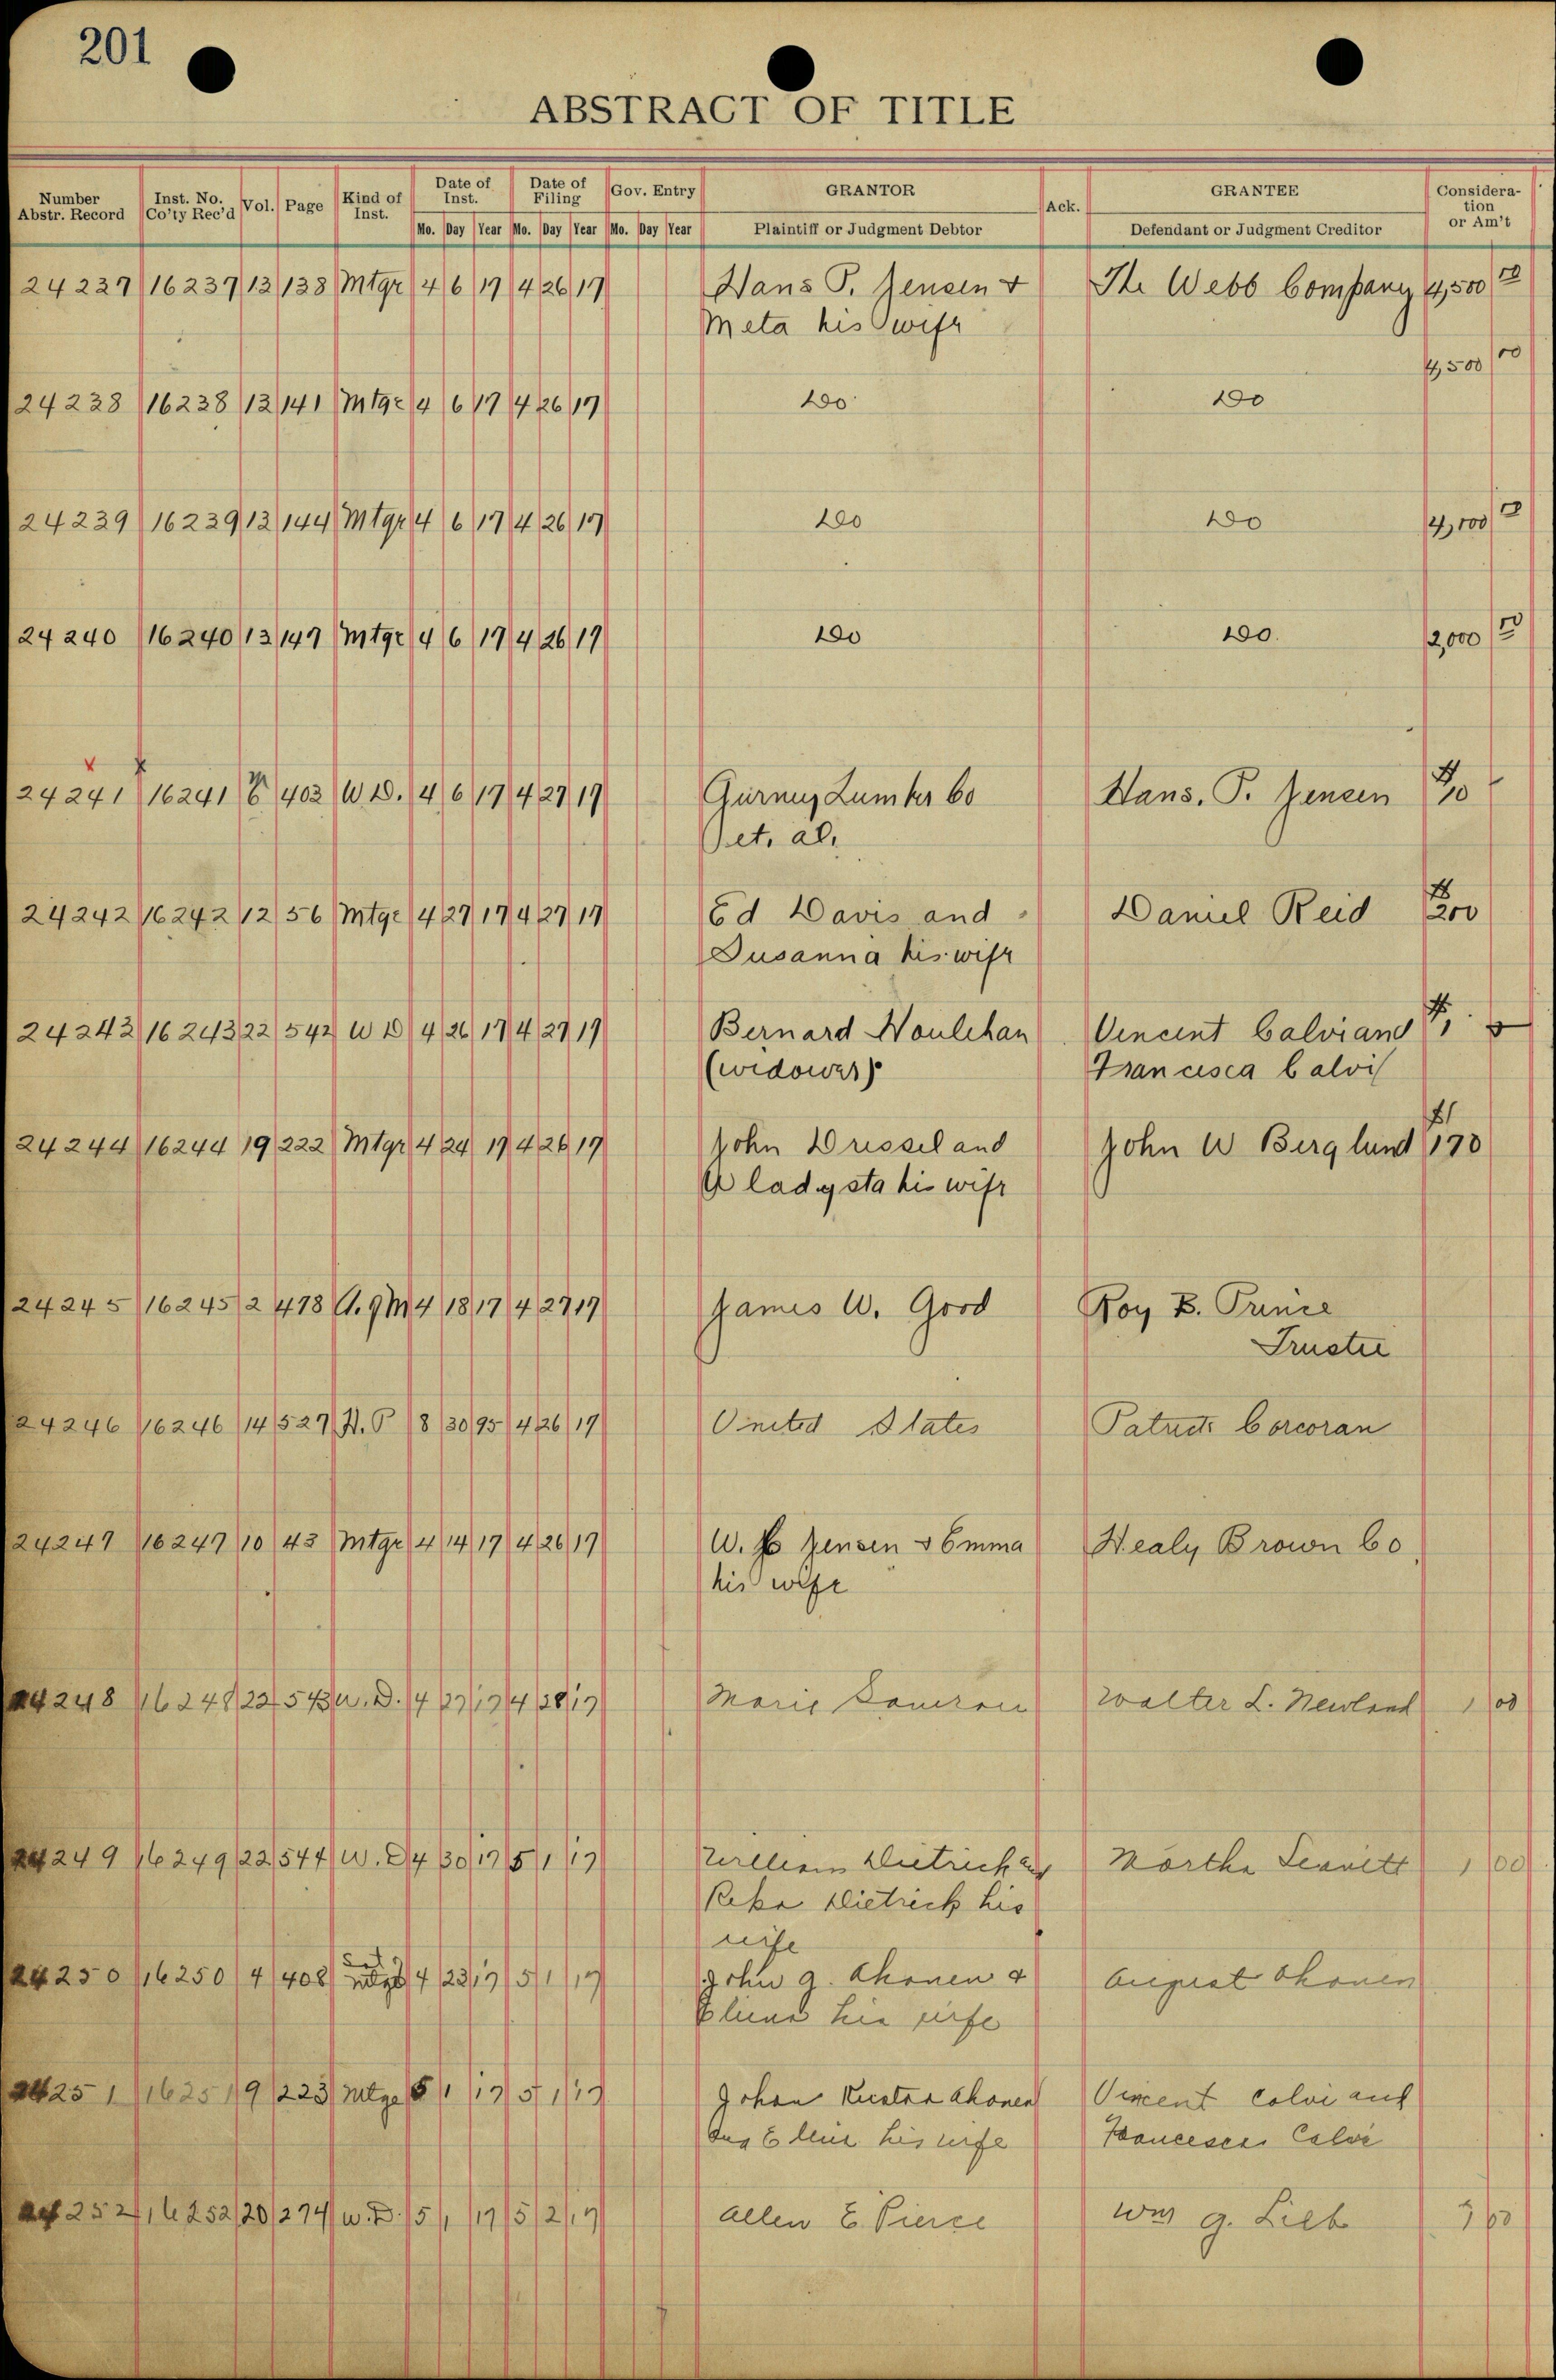 201
ABSTRACT OF TITLE
Number Abstr. Record Inst. No. Co'ty Rec'd Vol. Page Kind of Inst. Date of Inst. Date of Filing Gov. Entry GRANTOR Ack. GRANTEE Consideration or Am't
Mo. Day Year Mo. Day Year Mo. Day Year Plaintiff or Judgment Debtor Defendant or Judgment Creditor
24237 16237 13 138 Mtge 4 6 17 4 26 17 Hans P. Jensen & The Webb Company 4,500 00
Meta his wife
4,500 00
24238 16238 13 141 Mtge 4 6 17 4 26 17 Do Do
24239 16239 13 144 Mtge 4 6 17 4 26 17 Do Do 4,100
24240 16240 13 147 Mtge 4 6 17 4 26 17 Do Do. 2,000
x x
24241 16241 403 W D. 4 6 17 4 27 17 Gurney Lumber Co Hans. P. Jensen $10
et. al.
24242 16242 12 56 Mtge 4 27 17 4 27 17 Ed Davis and Daniel Reid $200
Susanna his wife
24243 16243 22 542 W D 4 26 17 4 27 17 Bernard Houlehan Vincent Calvi and $1
(widower) Francisca Calvi
24244 16244 19 222 Mtge 4 24 17 4 26 17 John Dressel and John W Berglund $170
Gladysta his wife
24245 16245 2 478 A. g M 4 18 17 4 27 17 James W. Good Roy B. Prince
Trustee
24246 16246 14 527 P 8 30 95 4 26 17 United States Patrick Corcoran
24247 16247 10 43 Mtge 4 14 17 4 26 17 W. Jensen & Emma Healy Brown Co
his wife
24248 16248 22 543 W. D. 4 27 17 4 28 17 Marie Walter L. Newland 1 00
24249 16249 22 544 W. D 4 30 17 5 1 17 William Dietrick and Martha Leavitt 1 00
Reka Dietrick his
wife
24250 16250 4 408 4 23 17 5 1 17 John A. Ahonen & August Ahonen
his wife
24251 16251 9 223 Mtge 5 1 17 5 1 17 Johan Kustaa Ahonen Vincent Calvi and
his wife Francesca Calvi
24252 16252 20 274 W. D. 5 1 17 5 2 17 Allen E. Pierce Wm G. Lieb